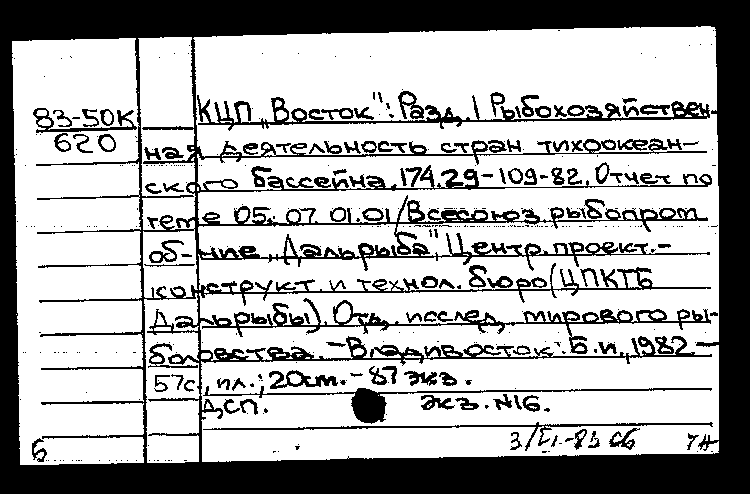 КЦП „Восток": Разд. 1 Рыбохозяйствен-
83-50К
620
ная деятельность стран тихоокеан-
ского бассейна. 174.29-109-82. Отчет по
теме 05. 07 01.01/Всесоюз. рыбопром
об-ние „Дальрыба", Центр. проект.-
конструкт. и технол. бюро (ЦПКТБ
Дальрыбы). Отд. исслед. мирового ры-
боловства. - Владивосток: Б.и., 1982 -
57с., ил.; 20см. - 87 экз.
ДСП. экз. №16.
6